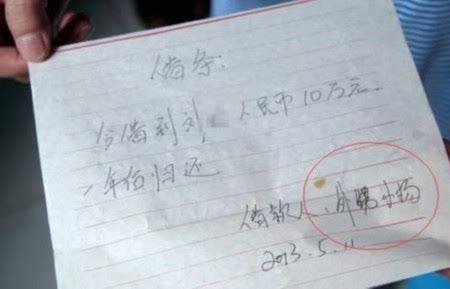 借条:
今借到刘 人民币10万元.
一年后归还
借款人:
2013.5.11